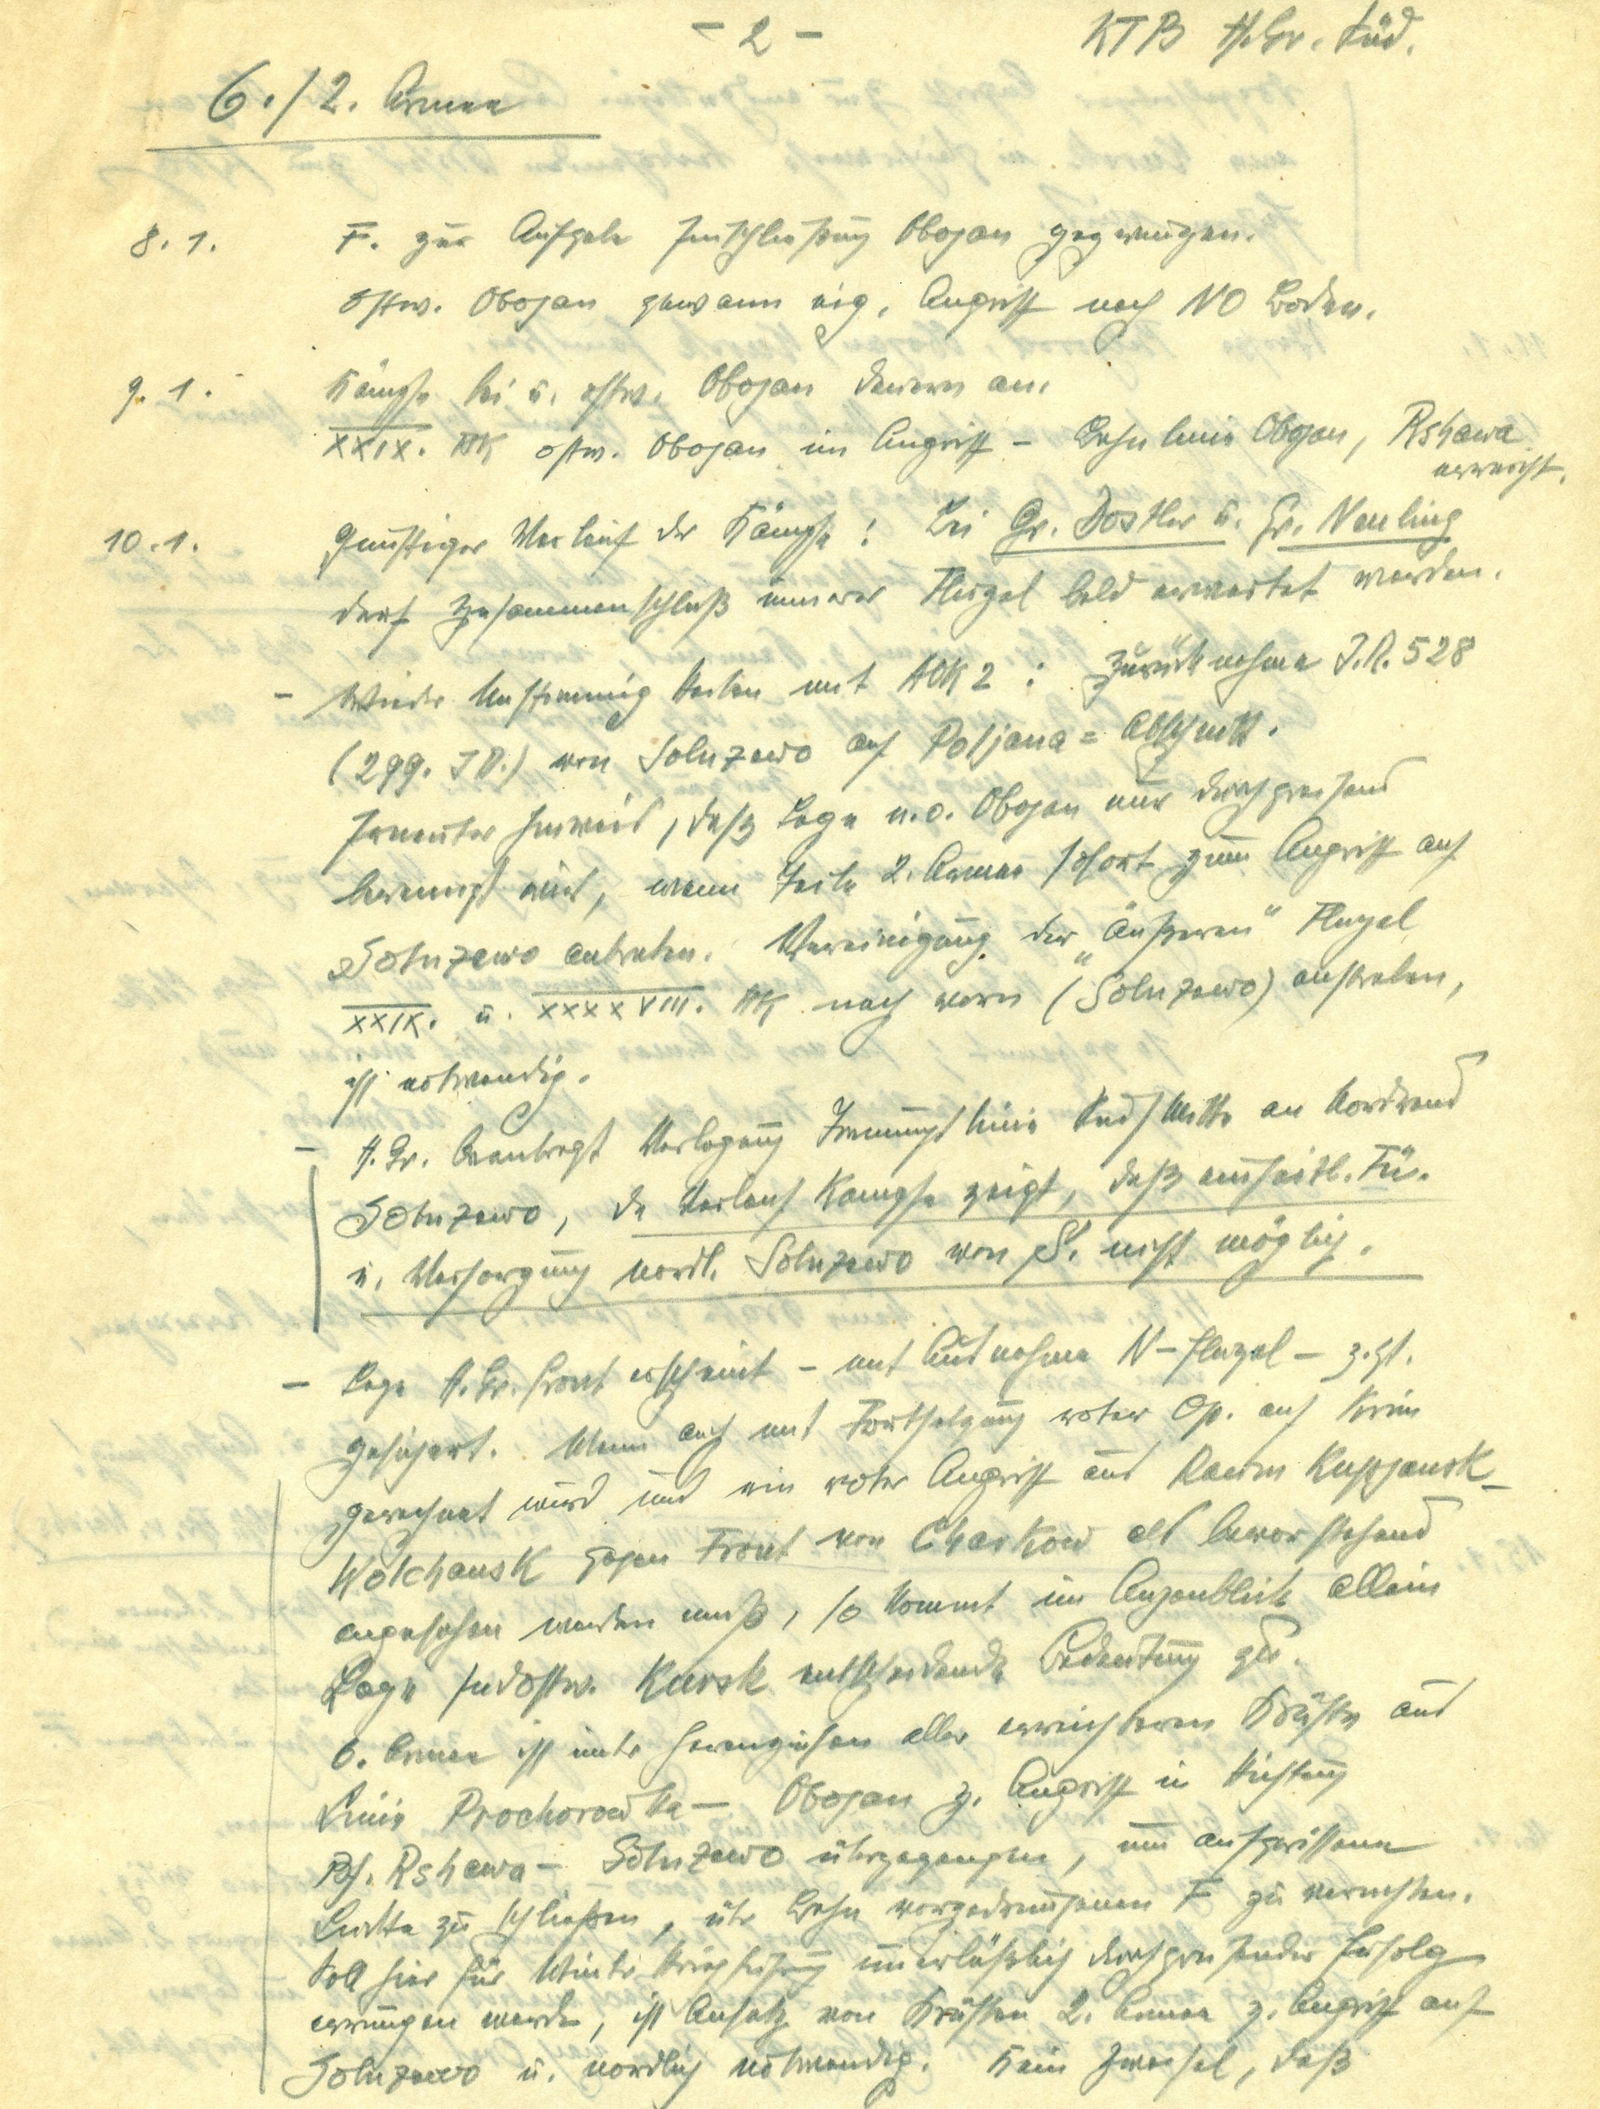 - 2 -
KTB H.Gr. Süd.
6./2. Armee
8.1. F. zur Aufgabe Einschließung Obojan gezwungen.
Ostw. Obojan gewann eig. Angriff nach NO Boden.
9.1. Kämpfe bei u. ostw. Obojan dauern an.
XXIX. AK ostw. Obojan im Angriff - Bahnlinie Obojan, Rshawa
erreicht.
10.1. Günstiger Verlauf der Kämpfe: Bei Gr. Dostler u. Gr. Neuling
darf Zusammenschluß innerer Flügel bald erwartet werden.
- Wieder Unstimmigkeiten mit AOK 2: Zurücknahme I.R. 528
(299. ID.) von Solnzewo auf Poljana = Abschnitt.
Erneuter Hinweis, daß Lage n.o. Obojan nur durchgreifend
bereinigt wird, wenn Teile 2. Armee sofort zum Angriff auf
Solnzewo antreten. Vereinigung der "äußeren" Flügel
XXIX. u. XXXXVIII. AK nach vorn (Solnzewo) anstreben,
ist notwendig.
- H.Gr. beantragt Verlegung Trennungslinie Süd/Mitte an Nordrand
Solnzewo, da Verlauf Kämpfe zeigt, daß einheitl. Fü.
u. Versorgung nördl. Solnzewo von S. nicht möglich.
- Lage H.Gr. Front erscheint - mit Ausnahme N-Flügel - z.Zt.
gesichert. Wenn auch mit Fortsetzung roter Op. auf Krim
gerechnet wird und ein roter Angriff aus Raum Kupjansk-
Woltschansk gegen Front von Charkow als bevorstehend
angesehen werden muß, so kommt im Augenblick allein
Lage südostw. Kursk entscheidende Bedeutung zu.
6. Armee ist unter Heranziehen aller erreichbaren Kräfte aus
Linie Prochorowka - Obojan z. Angriff in Richtung
Bf. Rshawa - Solnzewo übergegangen, um aufgerissene
Lücke zu schließen, über Bahn vorgedrungenen F. zu vernichten.
Soll hier für unerläßlich durchgreifender Erfolg
errungen werden, ist Ansatz von Kräften 2. Armee z. Angriff auf
Solnzewo u. nördlich notwendig. Kein Zweifel, daß